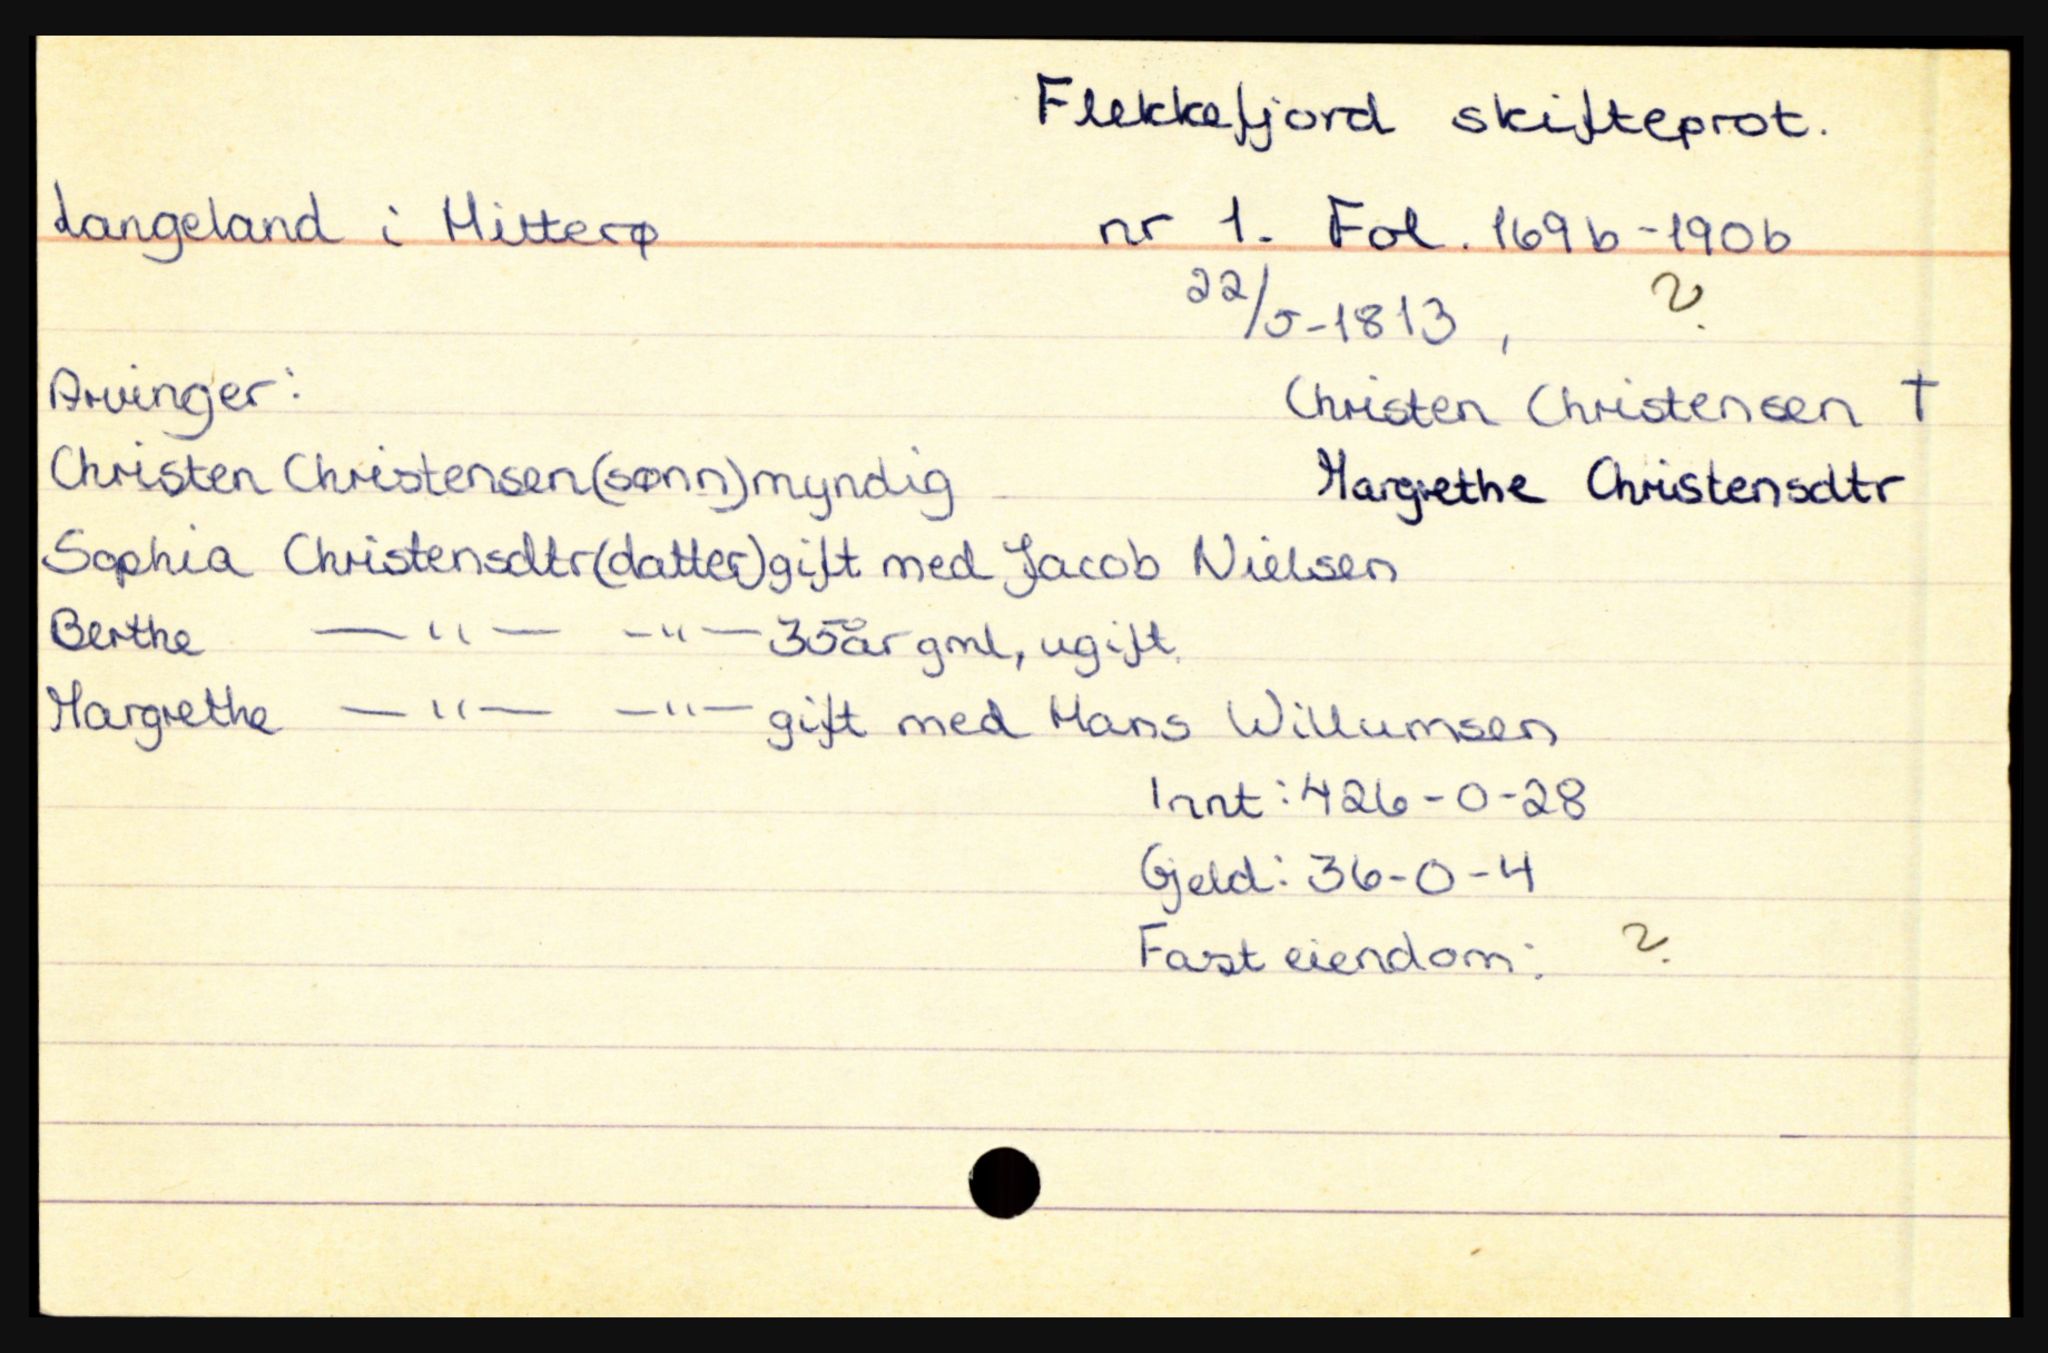 Flekkefjord skifteprot.
Langeland i Hitterø nr 1. Fol. 169b-190b
22/5-1813, ?
Arvinger: Christen Christensen †
Christen Christensen (sønn) myndig Margrethe Christensdtr
Sophia Christensdtr (datter) gift med Jacob Nielsen
Berthe —"— —"— 35 år gml, ugift.
Margrethe —"— —"— gift med Hans Willumsen
Innt: 426-0-28
Gjeld: 36-0-4
Fast eiendom: ?